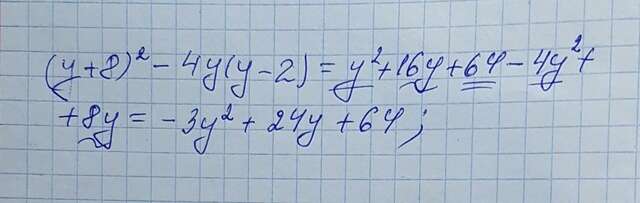 (y+8)² - 4y(y-2) = y² + 16y + 64 - 4y² +
+ 8y = -3y² + 24y + 64;